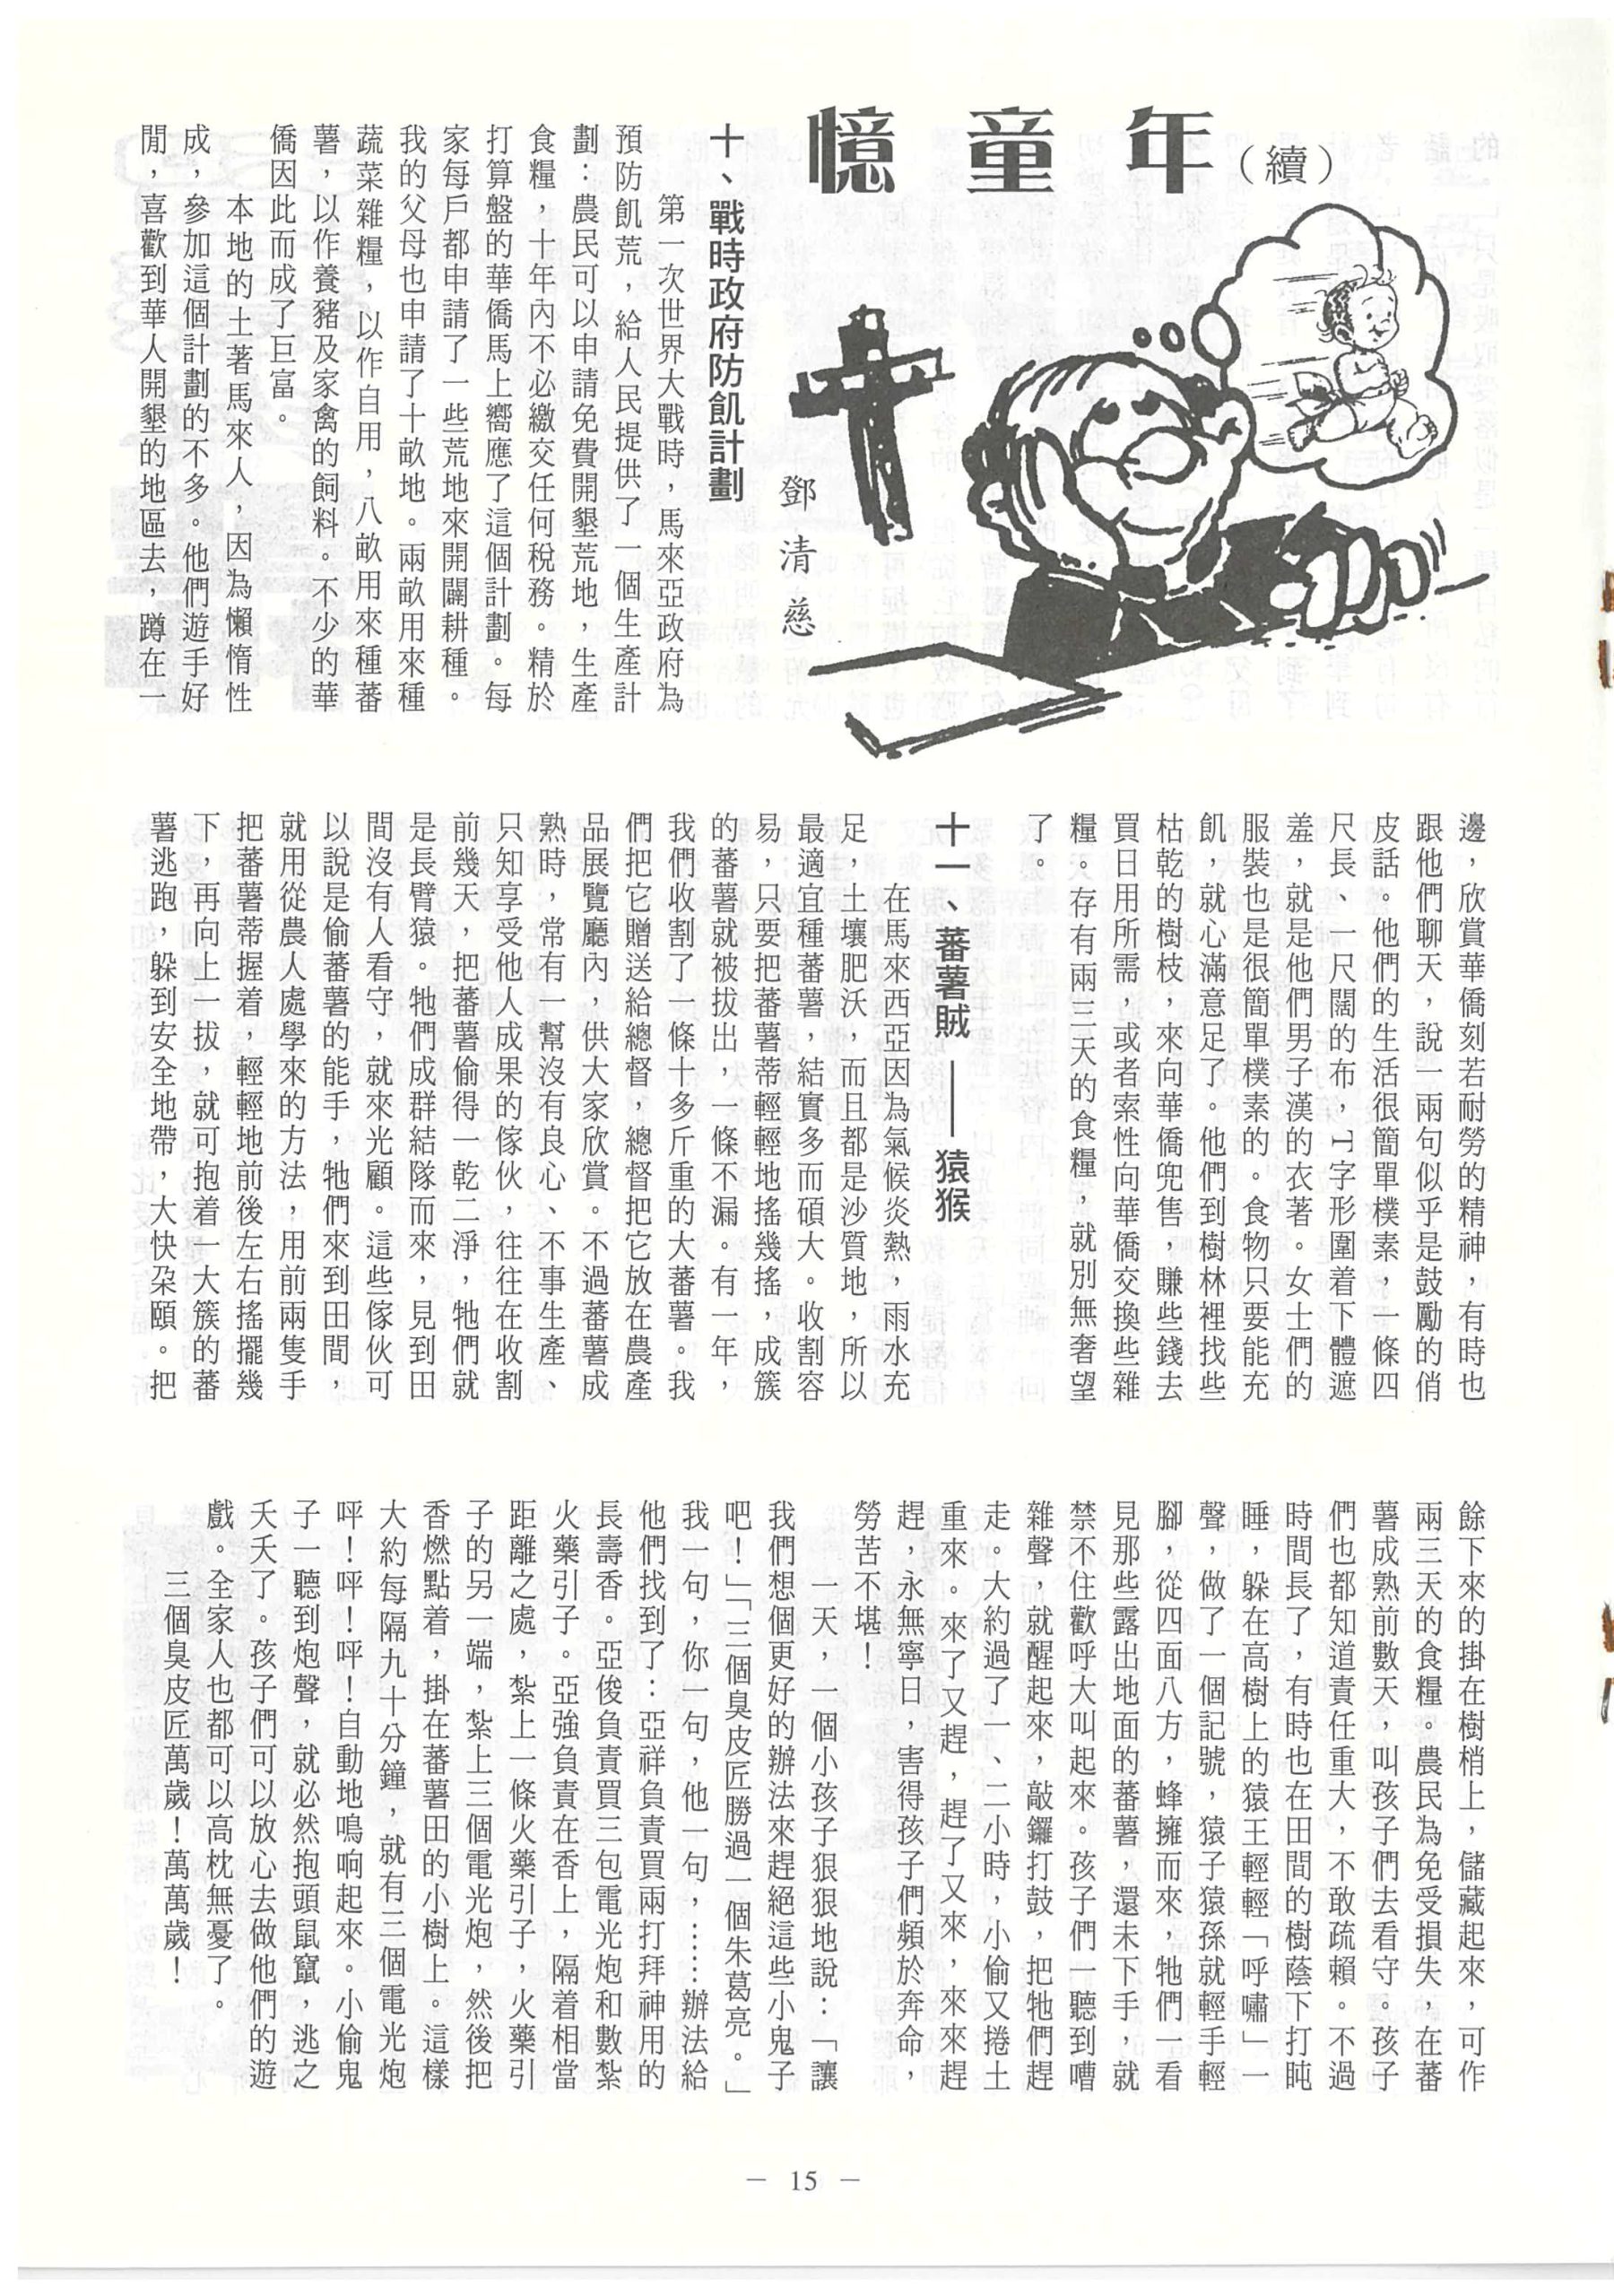 憶童年(續)
鄧清慈
十、戰時政府防飢計劃
第一次世界大戰時，馬來亞政府為
預防飢荒，給人民提供了一個生產計
劃：農民可以申請免費開墾荒地，生產
食糧，十年內不必繳交任何稅務。精於
打算盤的華僑馬上嚮應了這個計劃。每
家每戶都申請了一些荒地來開闢耕種。
我的父母也申請了十畝地。兩畝用來種
蔬菜雜糧，以作自用，八畝用來種蕃
薯，以作養豬及家禽的飼料。不少的華
僑因此而成了巨富。
本地的土著馬來人，因為懶惰性
成，參加這個計劃的不多。他們遊手好
閒，喜歡到華人開墾的地區去，蹲在一
邊，欣賞華僑刻若耐勞的精神，有時也
跟他們聊天，說一兩句似乎是鼓勵的俏
皮話。他們的生活很簡單樸素，一條四
尺長、一尺闊的布，T字形圍着下體遮
羞，就是他們男子漢的衣著。女士們的
服裝也是很簡單樸素的。食物只要能充
飢，就心滿意足了。他們到樹林裡找些
枯乾的樹枝，來問華僑兜售，賺些錢去
買日用所需，或者索性向華僑交換些雜
糧。存有兩三天的食糧，就別無奢望
了。
十一、蕃薯賊——猿猴
在馬來西亞因為氣候炎熱，雨水充
足，土壤肥沃，而且都是沙質地，所以
最適宜種蕃薯，結實多而碩大。收割容
易，只要把蕃薯蒂輕輕地搖幾搖，成簇
的蕃薯就被拔出，一條不漏。有一年，
我們收割了一條十多斤重的大蕃薯。我
們把它贈送給總督，總督把它放在農產
品展覽廳內，供大家欣賞。不過蕃薯成
熟時，常有一幫沒有良心、不事生產、
只知享受他人成果的傢伙，往往在收割
前幾天，把蕃薯偷得一乾二淨，牠們就
是長臂猿。牠們成群結隊而來，見到田
間沒有人看守，就來光顧。這些傢伙可
以說是偷蕃薯的能手，牠們來到田間
就用從農人處學來的方法，用前兩隻手
把蕃薯蒂握着，輕輕地前後左右搖擺幾
下，再向上一拔，就可抱着一大簇的蕃
薯逃跑，躲到安全地帶，大快朵頤。把
餘下來的掛在樹梢上，儲藏起來，可作
兩三天的食糧。農民為免受損失，在蕃
薯成熟前數天，叫孩子們去看守。孩子
們也都知道責任重大，不敢疏賴。不過
時間長了，有時也在田間的樹蔭下打盹
睡，躲在高樹上的猿王輕輕「呼嘯」一
聲，做了一個記號，猿子猿孫就輕手輕
腳，從四面八方，蜂擁而來，牠們一看
見那些露出地面的蕃薯，還未下手，就
禁不住歡呼大叫起來。孩子們一聽到嘈
雜聲，就醒起來，敲鑼打鼓，把牠們趕
走。大約過了一、二小時，小偷又捲土
重來。來了又趕，趕了又來，來來趕
趕，永無寧日，害得孩子們頻於奔命，
勞苦不堪！
一天，一個小孩子狠狠地說：「讓
我們想個更好的辦法來趕絕這些小鬼子
吧！」「三個臭皮匠勝過一個朱葛亮。」
我一句，你一句，他一句，……辦法給
他們找到了：亞祥負責買兩打拜神用的
長壽香。亞俊負責買三包電光炮和數紮
火藥引子。亞強負責在香上，隔着相當
距離之處，紮上一條火藥引子，火藥引
子的另一端，紮上三個電光炮，然後把
香燃點着，掛在蕃薯田的小樹上。這樣
大約每隔九十分鐘，就有三個電光炮
呯！呯！呯！自動地鳴响起來。小偷鬼
子一聽到炮聲，就必然抱頭鼠竄，逃之
夭夭了。孩子們可以放心去做他們的遊
戲。全家人也都可以高枕無憂了。
三個臭皮匠萬歲！萬萬歲！
— 15 —